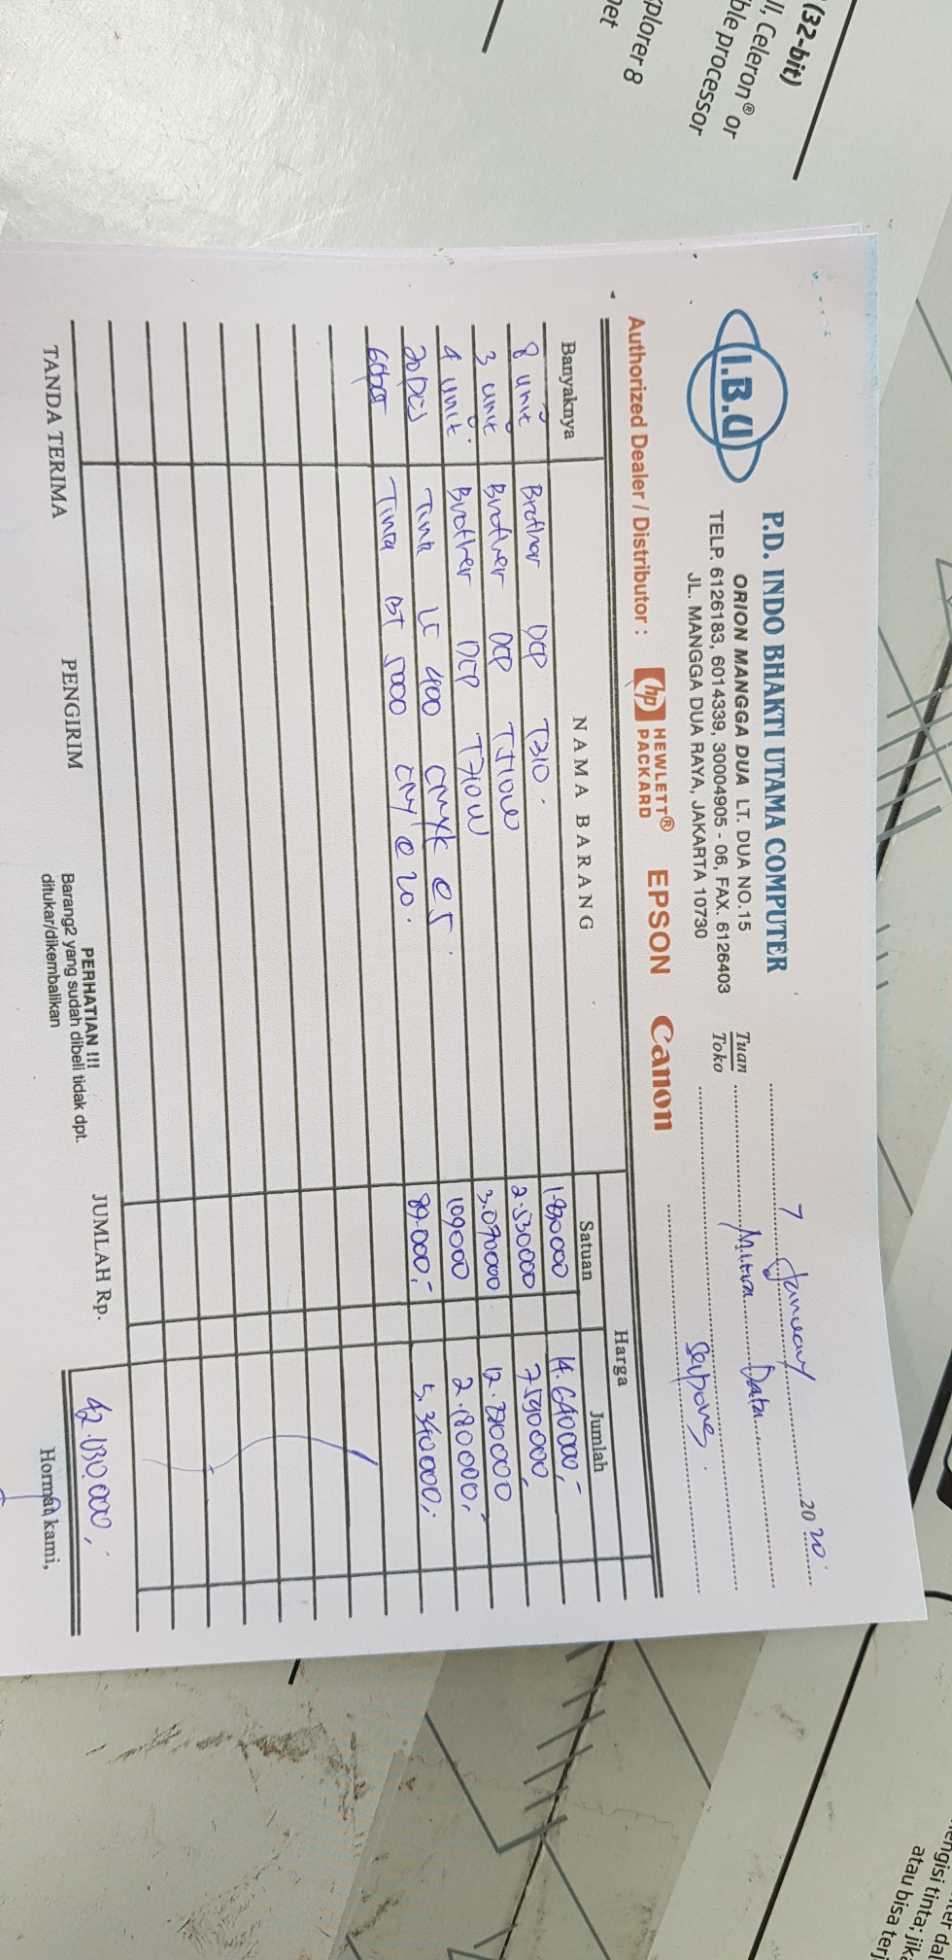 (32-bit)
ll, Celeron® or
ble processor
plorer 8
I.B.U
P.D. INDO BHAKTI UTAMA COMPUTER
ORION MANGGA DUA LT. DUA NO.15
TELP. 6126183, 6014339, 30004905 - 06, FAX. 6126403
JL. MANGGA DUA RAYA, JAKARTA 10730
7 January 2020
Tuan Mitra Data
Toko Serpong
Authorized Dealer / Distributor : hp HEWLETT® PACKARD EPSON Canon
Banyaknya NAMA BARANG Harga
Satuan Jumlah
8 unit Brother DCP T310. 1.830000 14.640000,-
3 unit Brother DCP T510W 2.530000 7590000,
4 unit Brother DCP T710W 3.070000 12.280000
20 pcs Tinta LC 400 CMYK @5 109000 2.180000,-
60 Tinta BT 5000 CMY @ 20. 89.000,- 5.340000,-
JUMLAH Rp. 42.030.000,
TANDA TERIMA PENGIRIM
PERHATIAN !!!
Barang2 yang sudah dibeli tidak dpt.
ditukar/dikembalikan
Hormat kami,
engisi tinta; jik
atau bisa terj